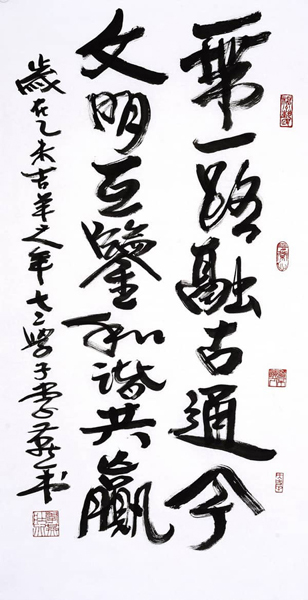 一带一路融古通今
文明互鉴和谐共赢
岁在乙未吉羊之年七二学子李燕书